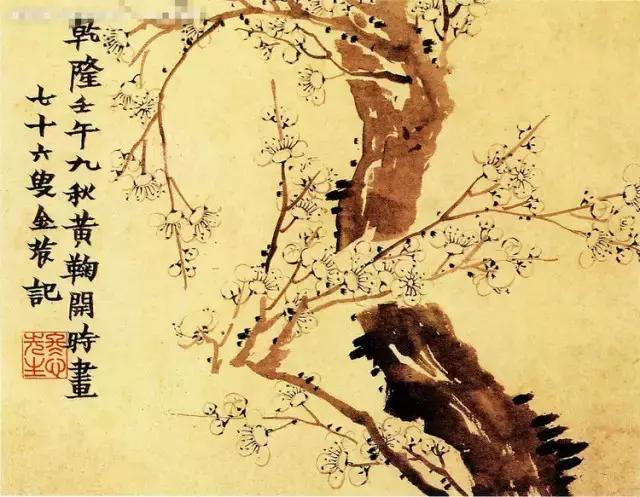 乾隆壬午九秋黄鞠開時畫
七十六叟金農記
冬心先生